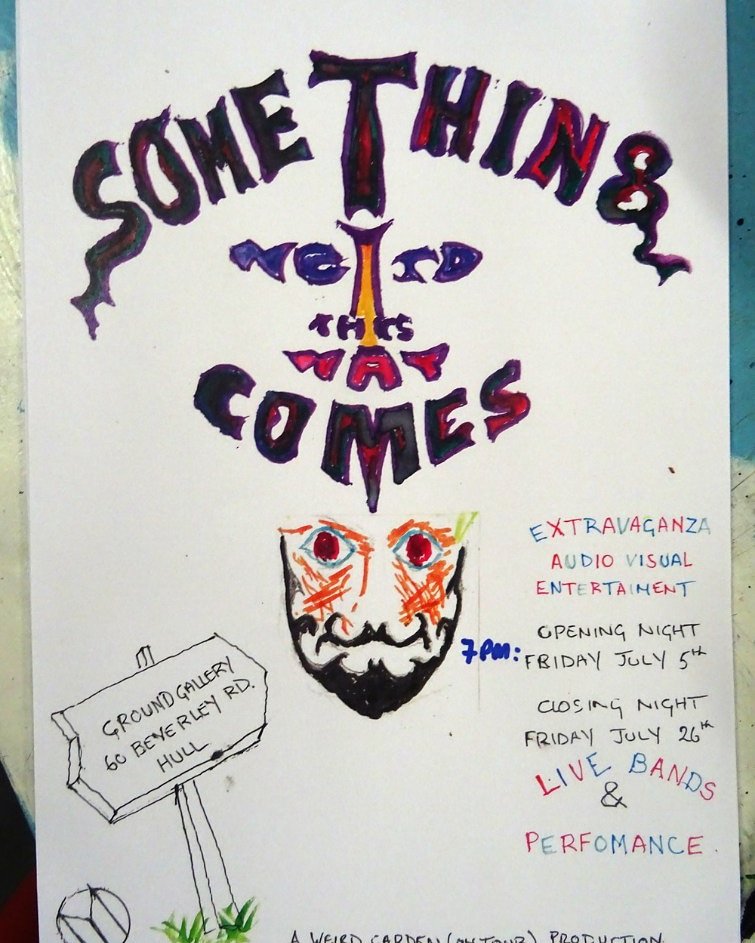 SOMETHING
WEIRD
THIS
WAY
COMES
EXTRAVAGANZA
AUDIO VISUAL
ENTERTAIMENT
7PM: OPENING NIGHT
FRIDAY JULY 5th
CLOSING NIGHT
FRIDAY JULY 26th
LIVE BANDS
&
PERFOMANCE.
GROUND GALLERY
60 BEVERLEY RD.
HULL
A WEIRD GARDEN (ON TOUR) PRODUCTION